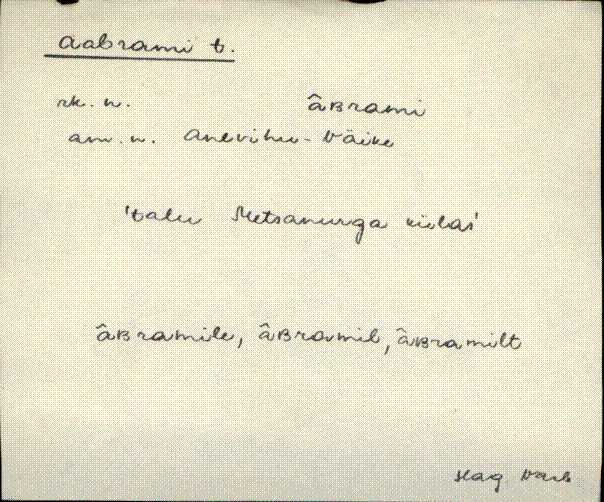 Aabrami t.
rk. n. âBrami
am. n. Anevihu-Väike
'talu Metsanurga külas'
âBramile, âBramil, âBramilt
Hag